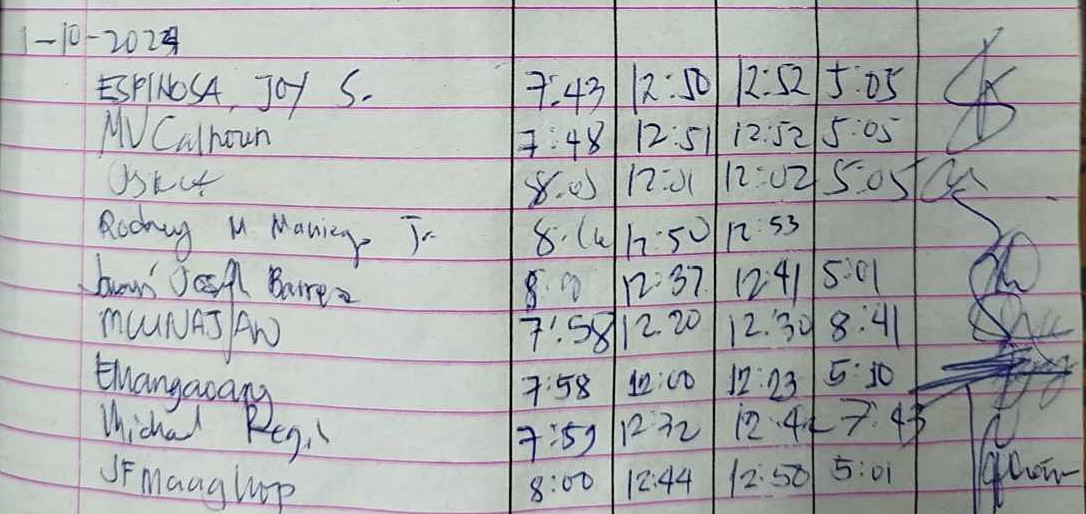 1-10-2024
ESPINOSA, JOY S. 7:43 12:50 12:52 5:05
MVCalhoun 7:48 12:51 12:52 5:05
8:05 12:01 12:02 5:05
Rodney M Maniego Jr. 8:16 12:50 12:53
Barnes 12:37 12:41 5:01
7:58 12.20 12.30 8:41
EMangaoang 7:58 12:00 12:23 5:10
Michael 7:59 12:32 12:42 7:43
JF 8:00 12:44 12:50 5:01